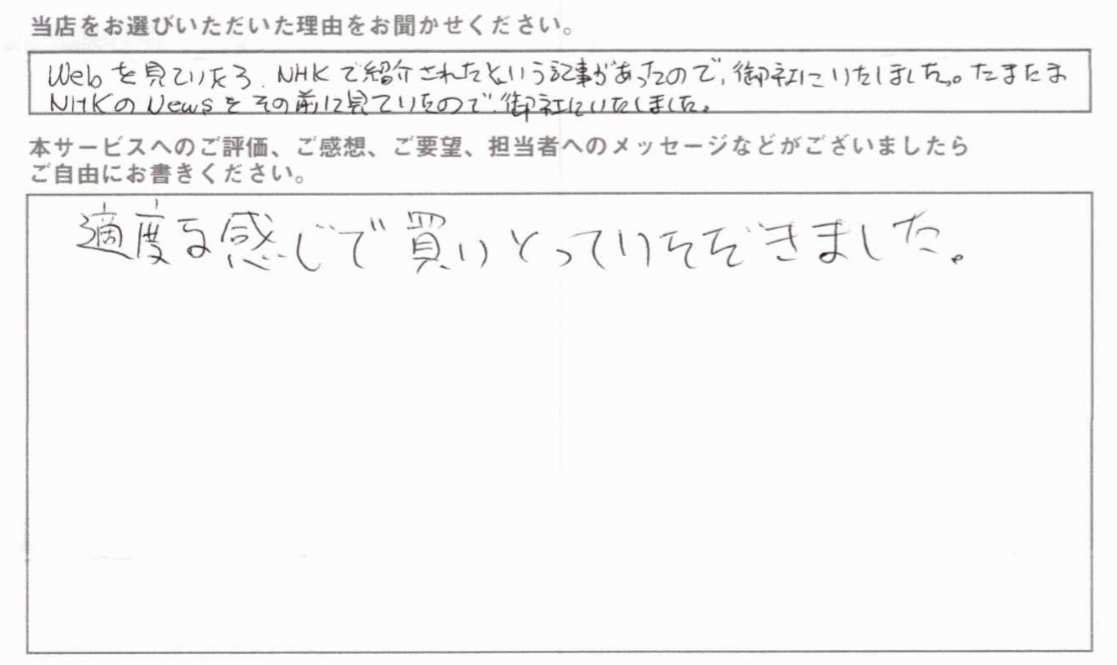 当店をお選びいただいた理由をお聞かせください。
Webを見ていたら、NHKで紹介されたという記事があったので、御社にいたしました。たまたま
NHKのNewsをその前に見ていたので、御社にいたしました。
本サービスへのご評価、ご感想、ご要望、担当者へのメッセージなどがございましたら
ご自由にお書きください。
適度な感じで買いとっていただきました。